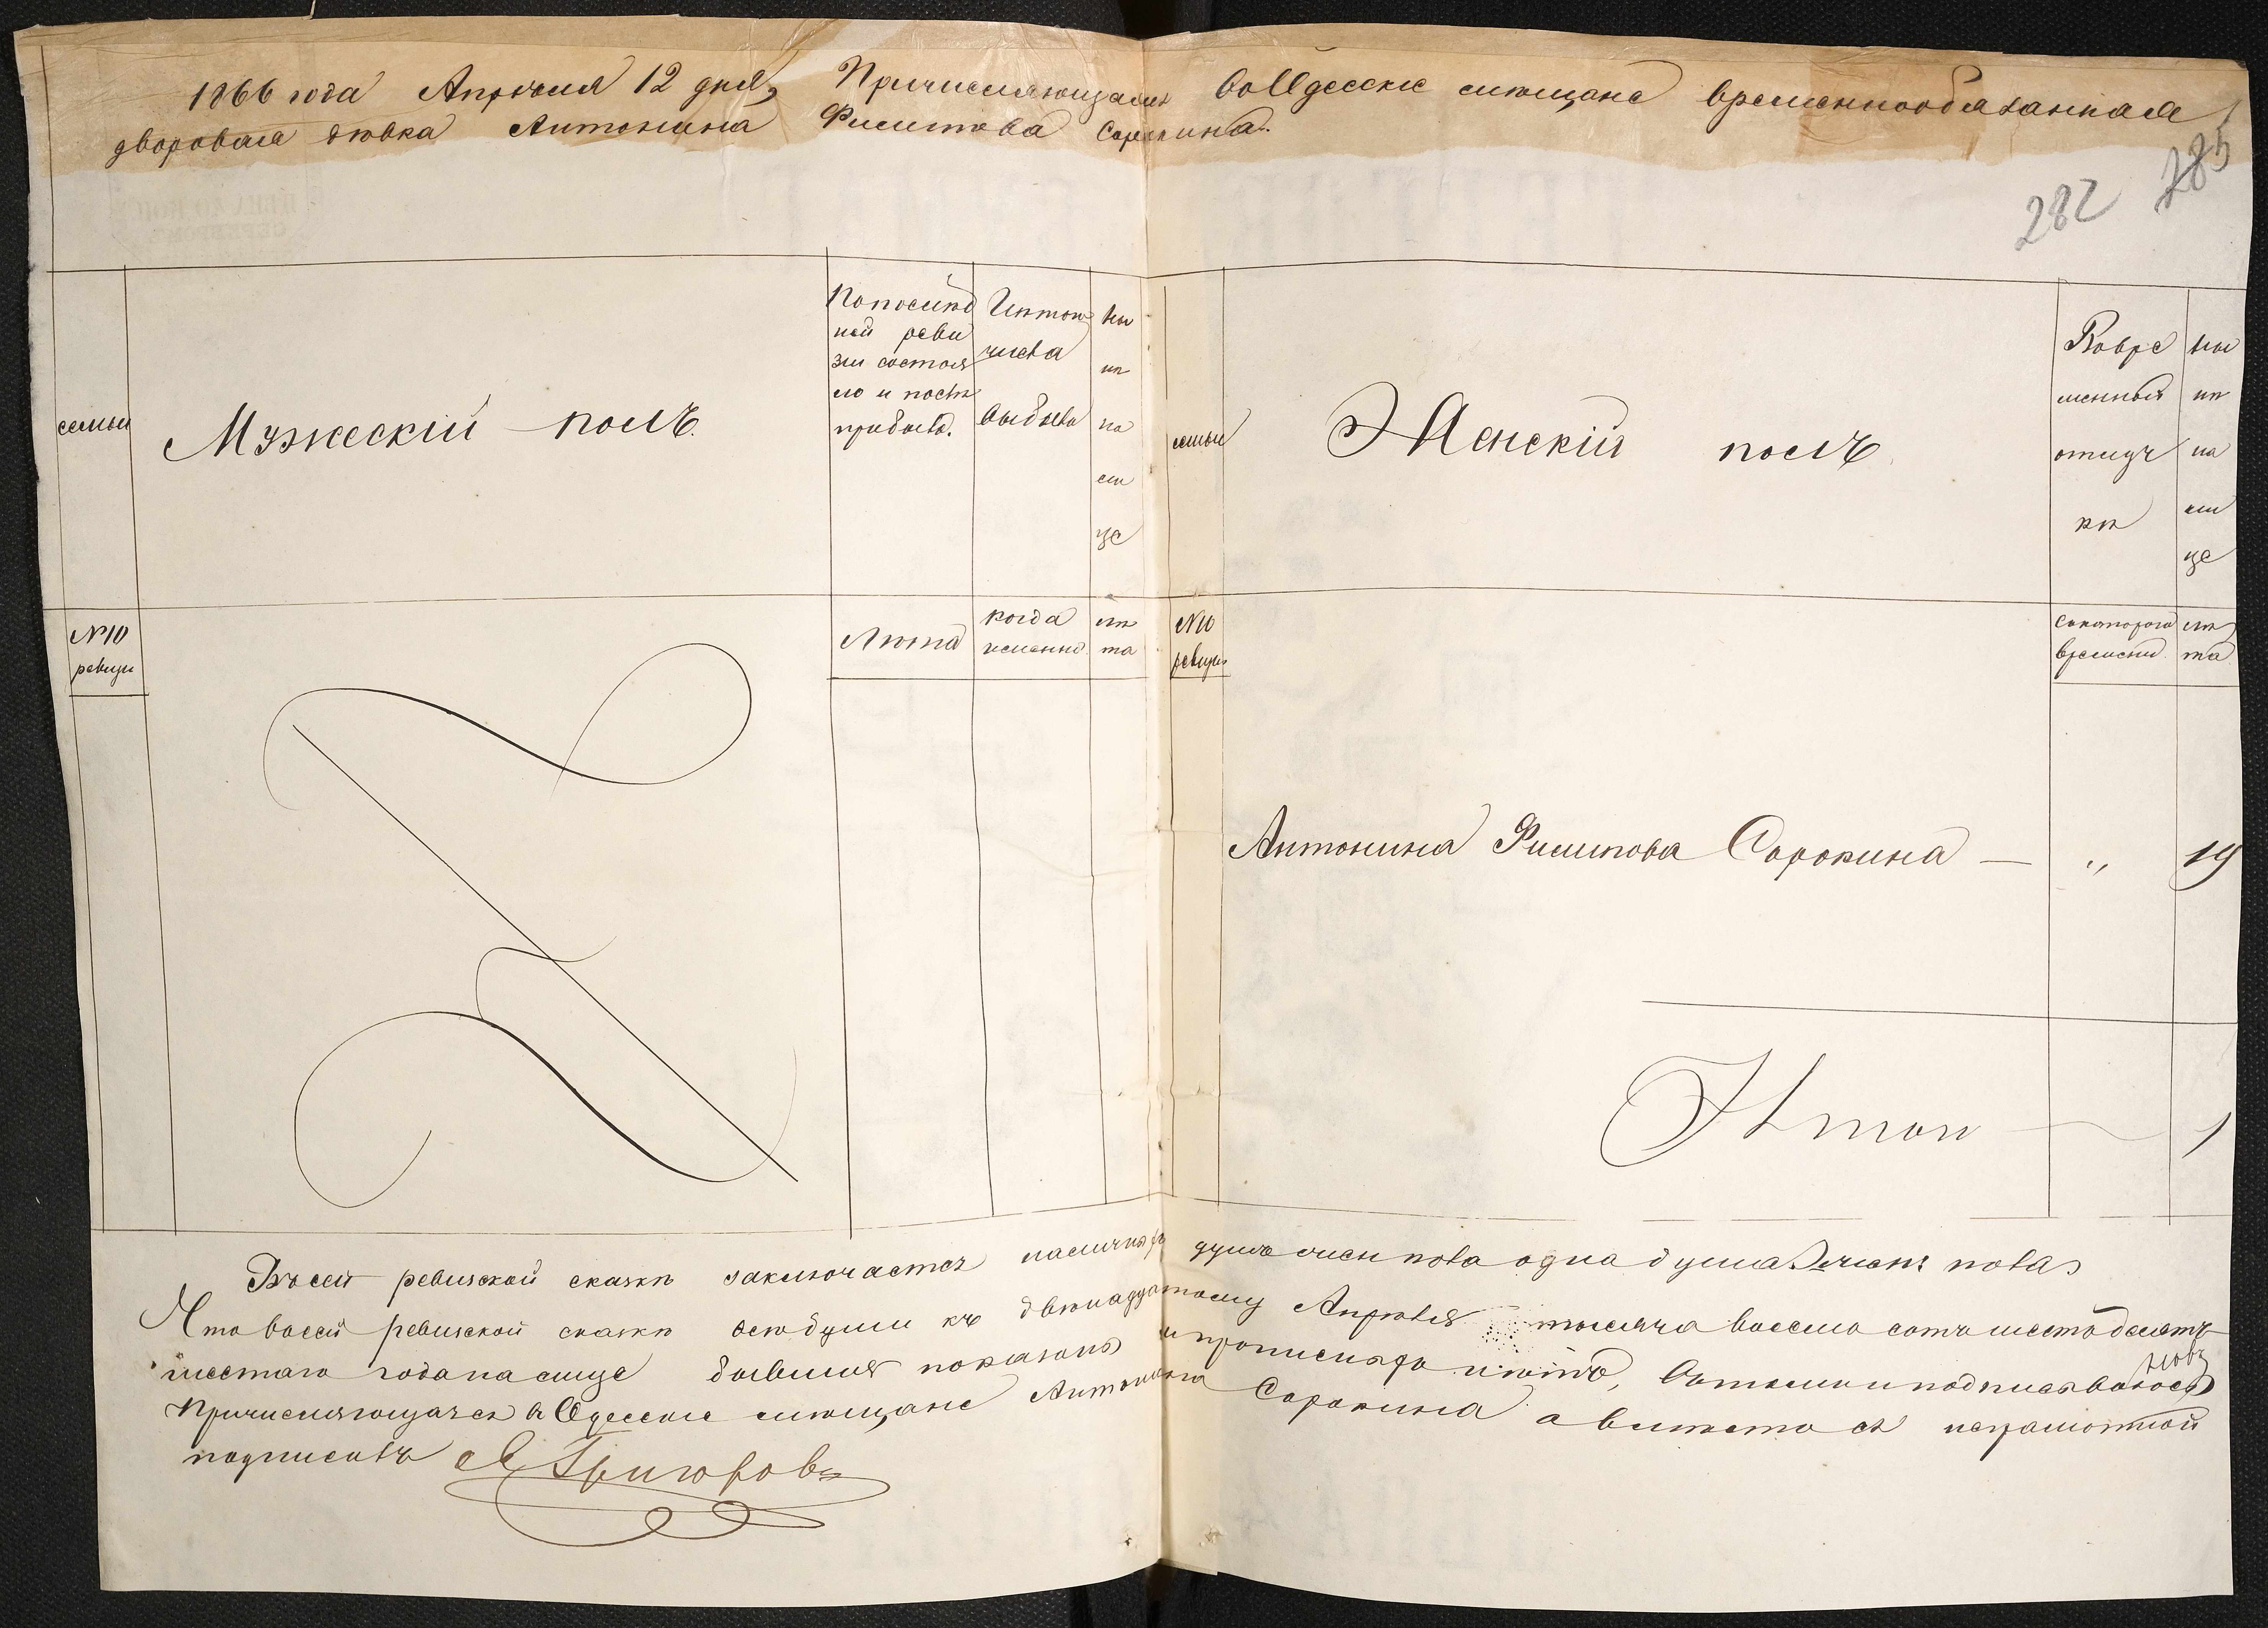 1866 года Апрѣля 12 дня, Причисляющаяся во Одесскіе мѣщане временнообязанная
дворовая дѣвка Антонина Филипова Сорокина.
282 285
семьи
Мужескій полъ.
По послѣд
ней реви
зіи состоя
ло и послѣ
прибыло.
Изъ того
числа
выбыло
Ны
нѣ
на
ли
це
семьи
Женскій полъ
Вовре
менной
отлуч
кѣ
Ны
нѣ
на
ли
це
№10
ревизіи
Лѣта
когда
именно
лѣ
та
№10
ревизіи
Скотораго
времени
лѣ
та
Антонина Филипова Сорокина — „ 19
Итон 1
Въ сей ревизской сказкѣ заключается наличныхъ душъ женпола одна душа женс пола
Что въсей ревизской сказкѣ всѣ души къ двѣнадцатому Апрѣля тысяча восемо сотъ шестьдесятъ
шестаго года налице бывшія показаны и прописныхъ нѣтъ, вътомъ и подписываюсь
Причисляющаяся въ Одесскіе мѣщане Антонина Сорокина а вмѣсто ея неграмотной
подписалъ А Григоровъ